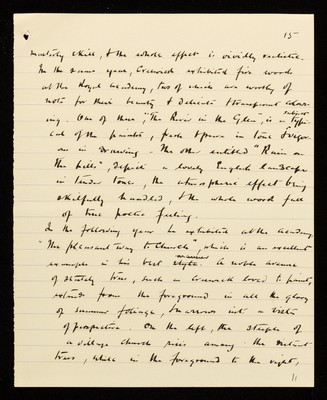 15
masterly skill, & the whole effect is vividly realistic.
In the same year, Creswick exhibited five works
at the Royal Academy, two of which are worthy of
note for their beauty & delicate & transparent colour-
ing. One of these, "The River in the Glen", is a typi-
subject
cal of the painter, fresh & pure in tone & vigor-
ous in drawing. The other entitled "Rain on
the hills", depicts a lovely English landscape
in tender tones, the atmospheric effect being
skilfully handled, & the whole work full
of true poetic feeling.
In the following year he exhibited at the Academy
"The pleasant way to Church", which is an excellent
example in his best
manner
A noble avenue
of stately trees, such as Creswick loved to paint,
extends from the foreground in all the glory
of summer foliage, & narrows into a vista
of perspective. On the left, the steeple of
a village church rises among the distant
trees, while in the foreground to the right,